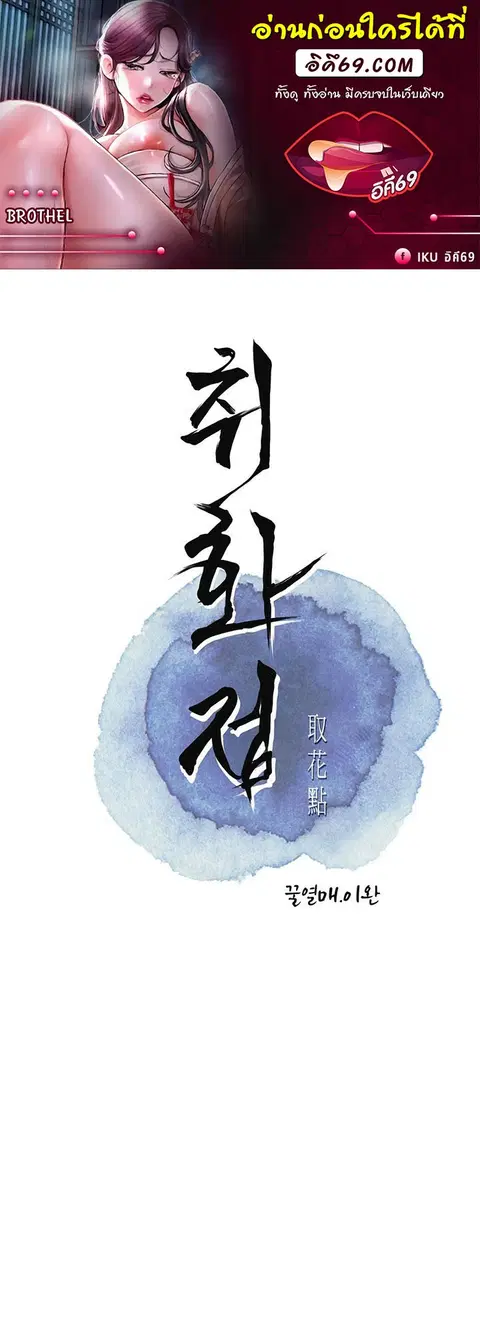 อ่านก่อนใครได้ที่
อิคึ69.COM
ทั้งดู ทั้งอ่าน มีครบจบในเว็บเดียว
อิคึ69
BROTHEL
IKU อิคึ69
취
화
점
取
花
點
꿀열매.이완